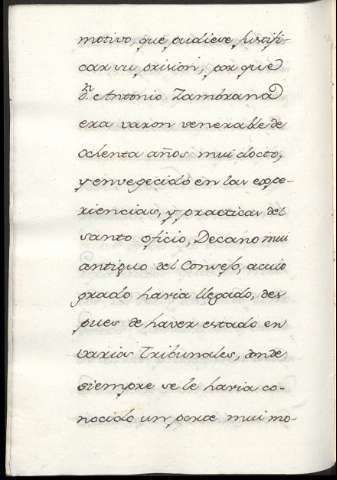 motivo, que pudiese justifi-
car su prision, por que
D.n Antonio Zambrana
era varon venerable de
ochenta años mui docto,
y envegecido en las espe-
riencias, y practicas del
santo oficio, Decano mui
antiguo del Consejo, a cuio
grado havia llegado, des
pues de haver estado en
varios Tribunales, donde
siempre se le havia co-
nocido un porte mui mo-